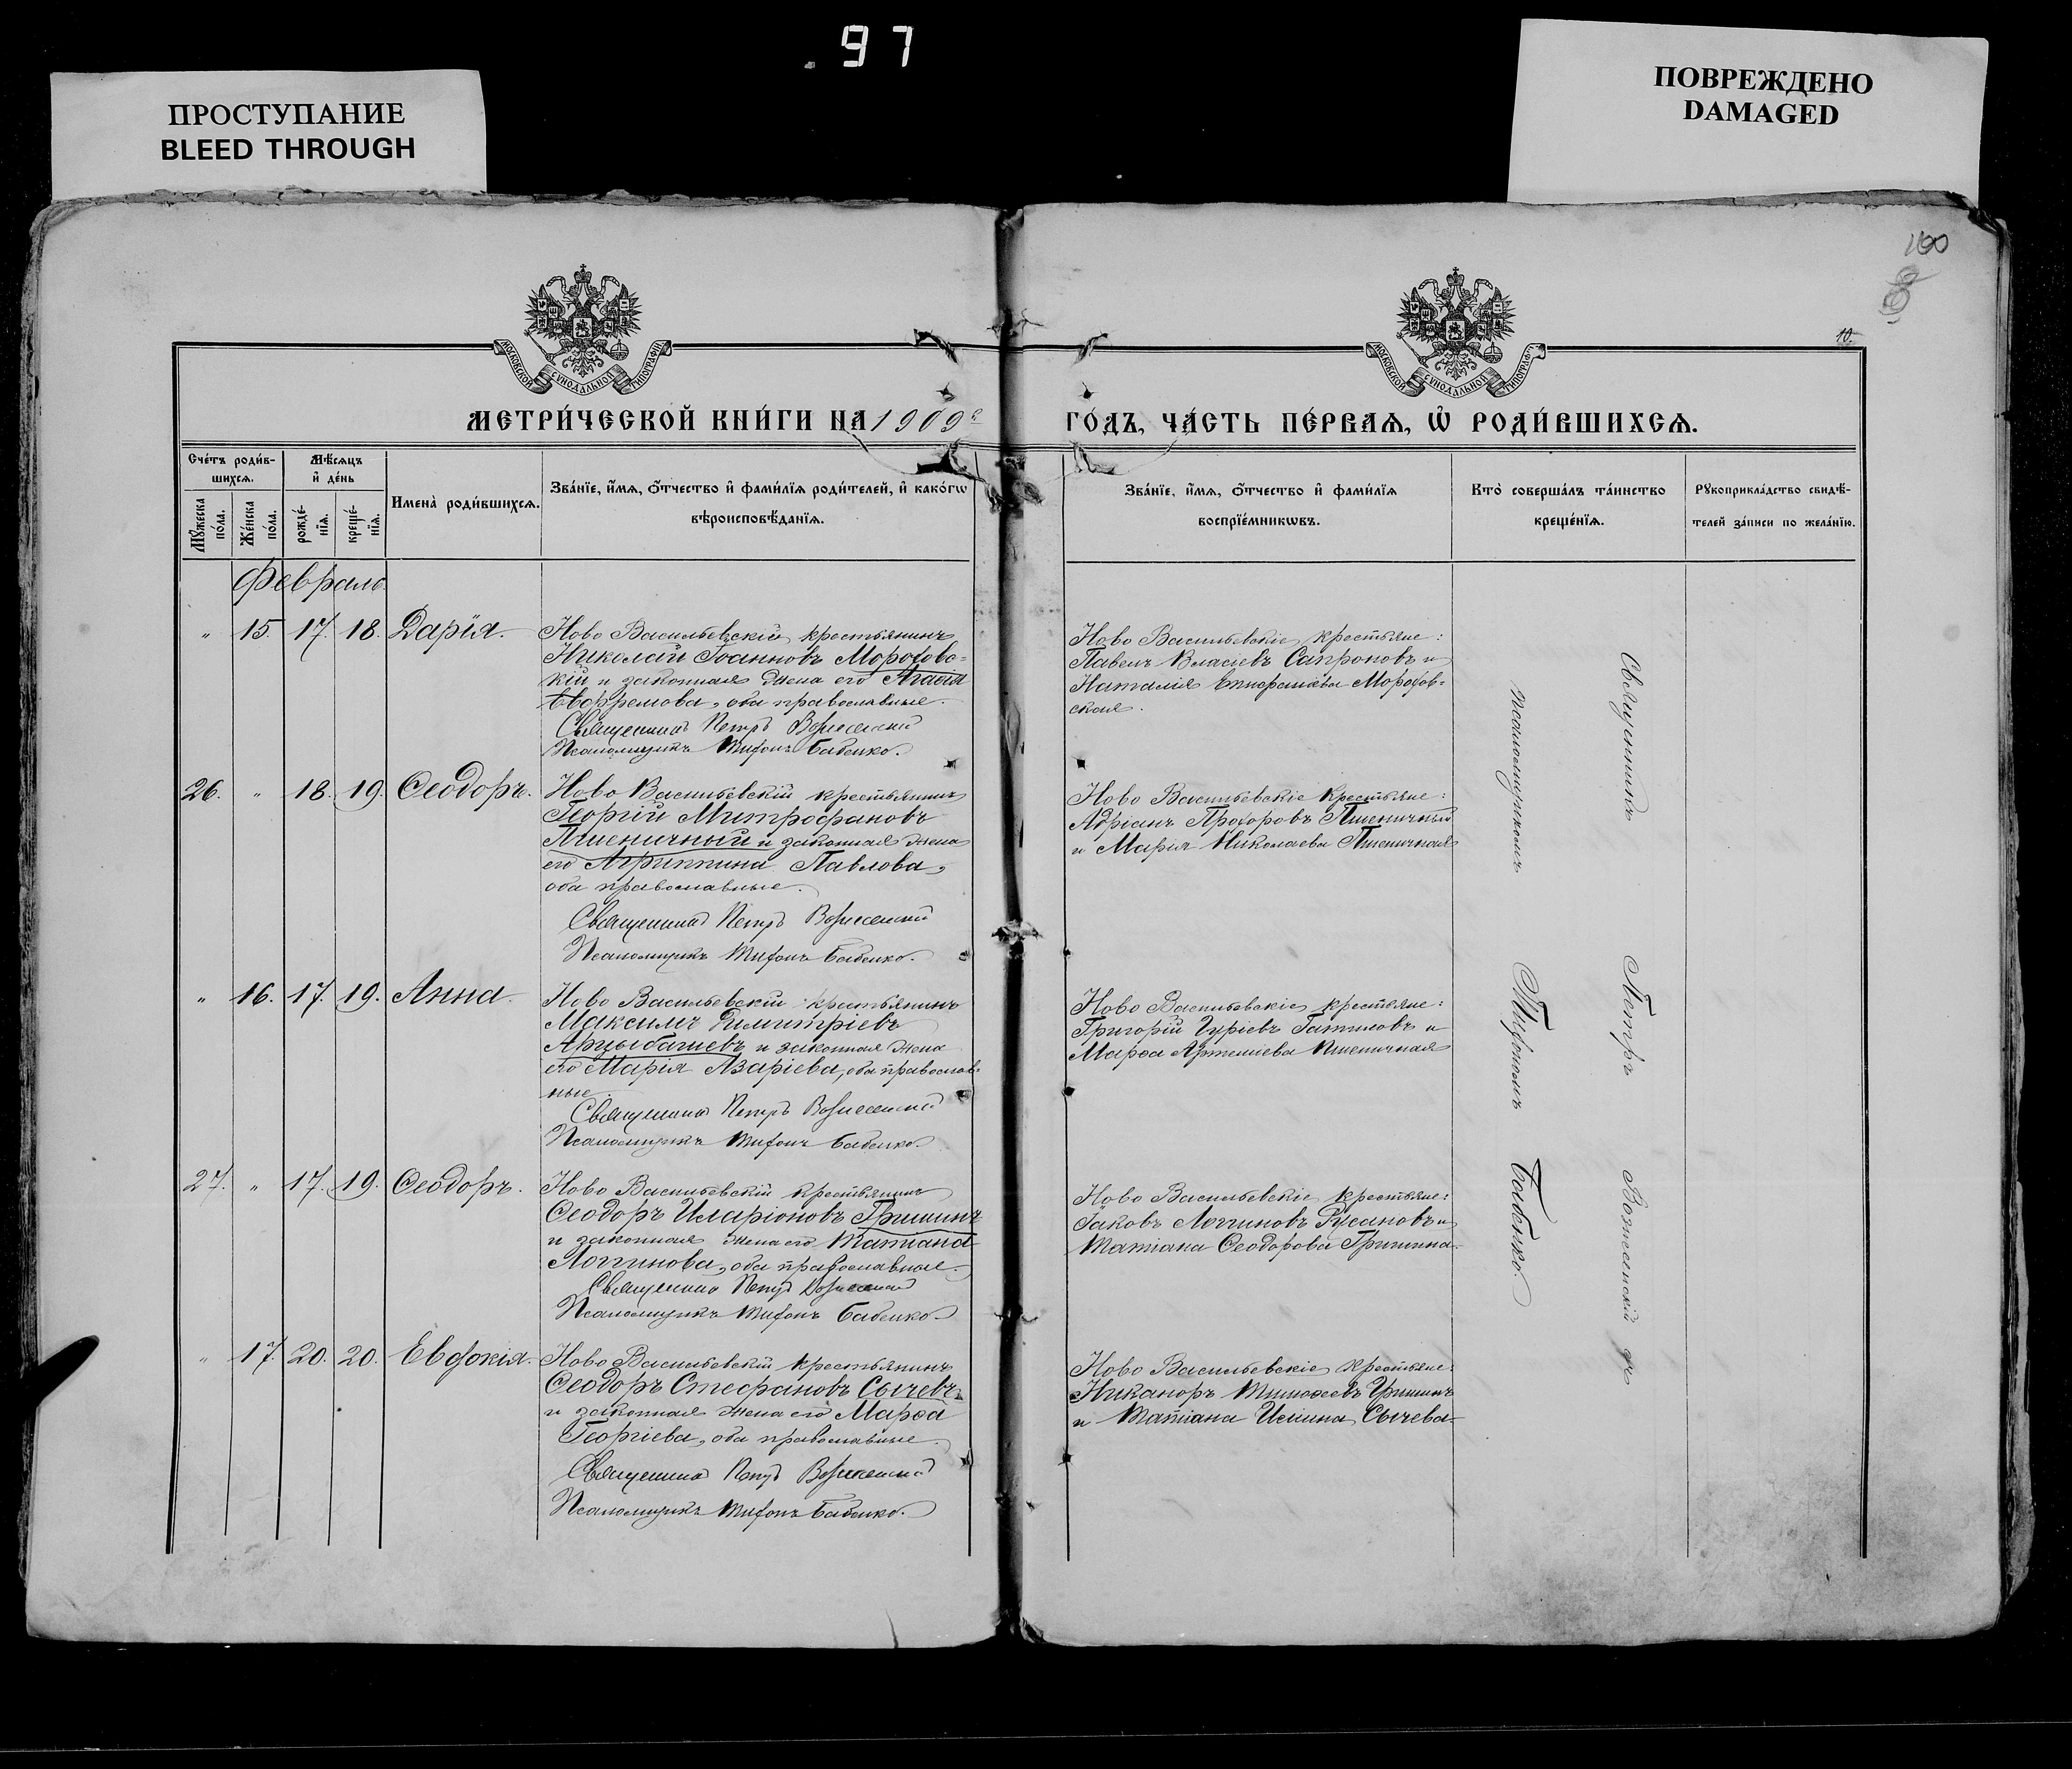 97
ПРОСТУПАНИЕ
BLEED THROUGH
ПОВРЕЖДЕНО
DAMAGED
100
8
10.
МОСКОВСКОЙ СѴНОДАЛЬНОЙ ТИПОГРАФІИ
МОСКОВСКОЙ СѴНОДАЛЬНОЙ ТИПОГРАФІИ
МЕТРИ́ЧЕСКОЙ КНИ́ГИ НА 1909 г
ГО́ДЪ, ЧА́СТЬ ПЕ́РВАѦ, Ѡ҆ РОДИ́ВШИХСѦ.
Сче́тъ роди́в-
шихсѧ.
Мꙋ́жеска по́ла.
Же́нска по́ла.
Мѣ́сѧцъ
и҆ де́нь
рожде́-
нїѧ.
креще́-
нїѧ.
Имена̀ роди́вшихсѧ.
Зва́нїе, и҆́мѧ, ѻ҆́тчество и҆ фами́лїѧ роди́телей, и҆ како́гѡ
вѣроисповѣ́данїѧ.
Зва́нїе, и҆́мѧ, ѻ҆́тчество и҆ фами́лїѧ
воспрїе́мникѡвъ.
Кто̀ соверша́лъ та́инство
креще́нїѧ.
Рꙋкоприкла́дство свидѣ́-
телей за́писи по жела́нїю.
Февраль.
" 15. 17. 18. Дарія.
Ново Васильевскій крестьянинъ
Николай Іоанновъ Морозовс=
кій и законная жена его Агаѳія
Евфремова, оба православные.
Священникъ Петръ Вознесенский
Псаломщикъ Тифонъ Бабенко.
Ново Васильевскіе крестьяне:
Павелъ Власіевъ Сапроновъ и
Наталія Морозов=
ская.
26. " 18. 19. Ѳеодоръ.
Ново Васильевскій крестьянинъ
Георгій Митрофановъ
Пшеничный и законная жена
его Агриппина Павлова,
оба православные.
Священникъ Петръ Вознесенский
Псаломщикъ Тифонъ Бабенко.
Ново Васильевскіе крестьяне:
Адріанъ Прохоровъ Пшеничный
и Марія Николаева Пшеничная
" 16. 17. 19. Анна.
Ново Васильевскій крестьянинъ
Максимъ Димитріевъ
Арцыбашевъ и законная жена
его Марія Азаріева, оба православ=
ные
Священникъ Петръ Вознесенский
Псаломщикъ Тифонъ Бабенко
Ново Васильевскіе крестьяне:
Григорій Гуріевъ Гатиловъ и
Марѳа Артеміева Пшеничная
27. " 17. 19. Ѳеодоръ.
Ново Васильевскій крестьянинъ
Ѳеодоръ Иларіоновъ Гришинъ
и законная жена его Татіана
Логгинова, оба православные.
Священникъ Петръ Вознесенский
Псаломщикъ Тифонъ Бабенко
Ново Васильевскіе крестьяне:
Іаковъ Логгиновъ Русановъ и
Татіана Ѳеодорова Гришина.
" 17. 20. 20. Евдокія.
Ново Васильевскій крестьянинъ
Ѳеодоръ Стефановъ Сычевъ
и законная жена его Марѳа
Георгіева, оба православные.
Священникъ Петръ Вознесенский
Псаломщикъ Тифонъ Бабенко.
Ново Васильевскіе крестьяне:
Никаноръ Тимоѳеевъ Гришинъ
и Татіана Исаіина Сычева
Священникъ Петръ Вознесенскій съ
псаломщикомъ Тифономъ Бабенко.